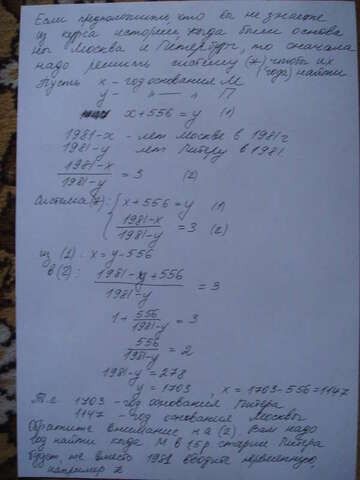 Если предположить, что вы не знаете
из курса истории, когда были основа
ны Москва и Петербург, то сначала
надо решить систему (*) чтобы их
(года) найти
Пусть x - год основания М
y - — " — П
x + 556 = y (1)
1981-x - лет Москве в 1981г
1981-y лет Питеру в 1981
1981-x / 1981-y = 3 (2)
система (*): { x + 556 = y (1)
1981-x / 1981-y = 3 (2)
из (1): x = y - 556
в (2): 1981-y+556 / 1981-y = 3
1 + 556 / 1981-y = 3
556 / 1981-y = 2
1981-y = 278
y = 1703, x = 1703-556=1147
Т.е. 1703 - год основания Питера
1147 - год основания Москвы
Обратите внимание на (2) Вам надо
год найти когда М в 1,5 р старше Питера
будет, те вместо 1981 вводите переменную,
например z